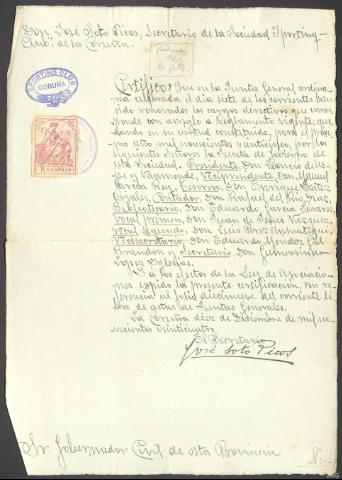 Don José Soto Picos, Secretario de la Sociedad "Sporting-
Club" de la Coruña.
SPORTING CLUB
CORUÑA
Certifico: Que en la Junta General ordina-
ria celebrada el día siete de los corrientes han
sido renovados los cargos directivos que corres-
ponde con arreglo a Reglamento vigente, que-
dando en su virtud constituida, para el próxi-
mo año mil novecientos veinticinco, por los
siguientes Señores la Junta de Gobierno de
esta Sociedad. Presidente, Don
y Vaamonde, Vicepresidente, Don Manuel
Rey, Tesorero, Don Enrique
Contador, Don Rafael del Río
Bibliotecario, Don Eduardo García
Vocal primero, Don Juan de Jesús Vázquez,
Vocal segundo, Don Luis Pérez
Vicesecretario, Don Eduardo Méndez
Brandón y Secretario, Don Gumersindo
López Iglesias.
Y a los efectos de la Ley de Asociacio-
nes expido la presente certificación, con re-
ferencia al folio diecinueve del corriente li-
bro de actas de Juntas Generales.
La Coruña diez de Diciembre de mil no-
vecientos veinticuatro.
El Secretario
José Soto Picos
Sr Gobernador Civil de esta Provincia